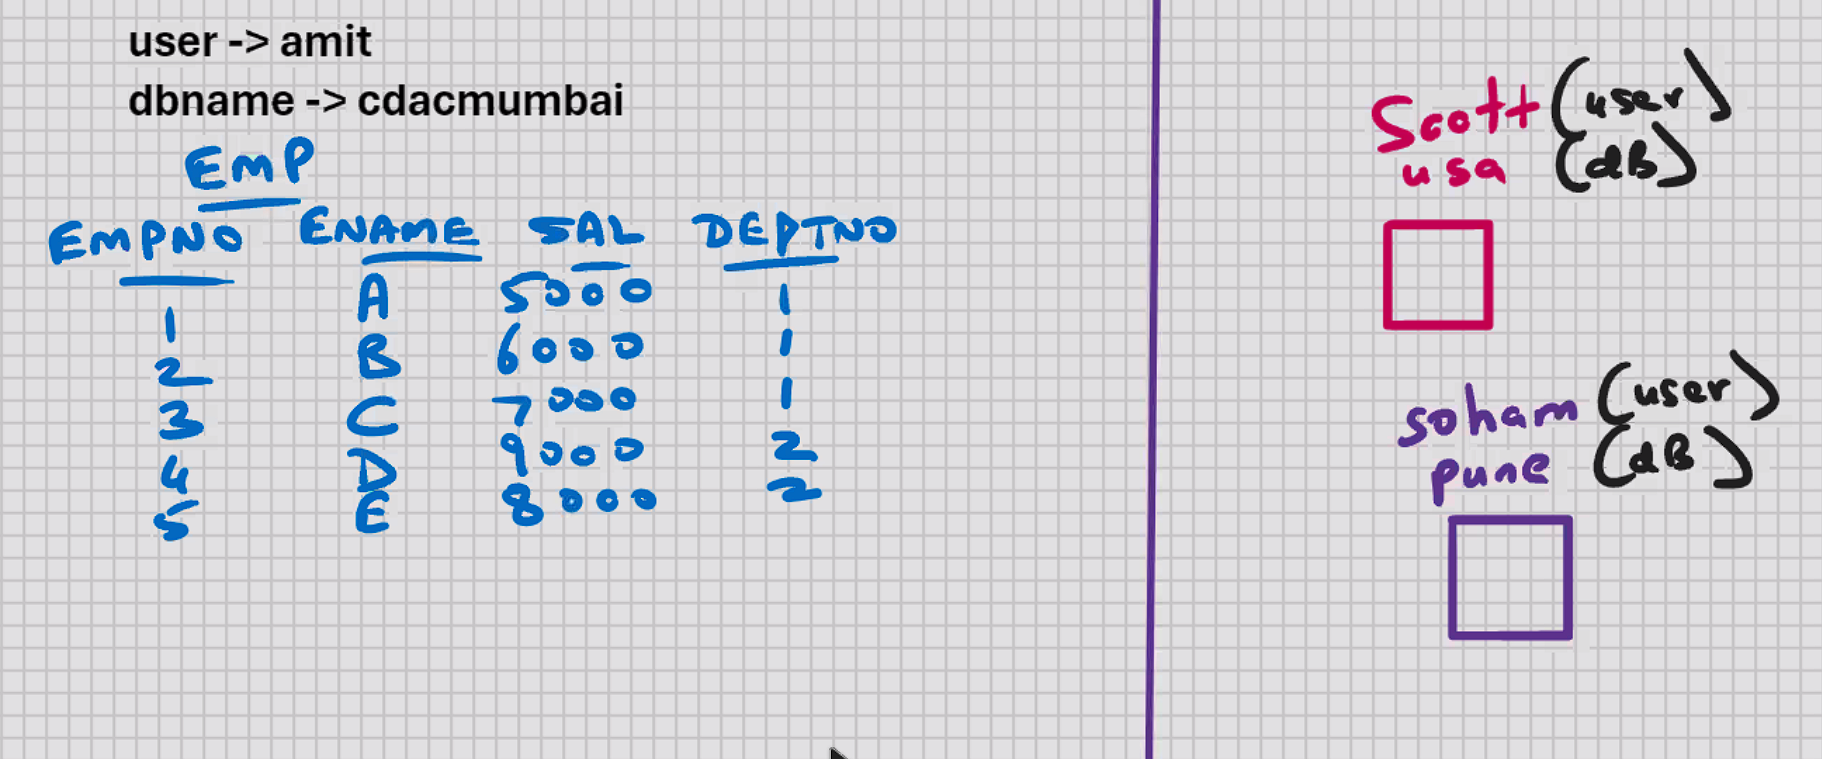 user -> amit
dbname -> cdacmumbai
EMP
EMPNO ENAME SAL DEPTNO
1 A 5000 1
2 B 6000 1
3 C 7000 1
4 D 9000 2
5 E 8000 2
Scott (user)
usa (dB)
soham (user)
pune (dB)